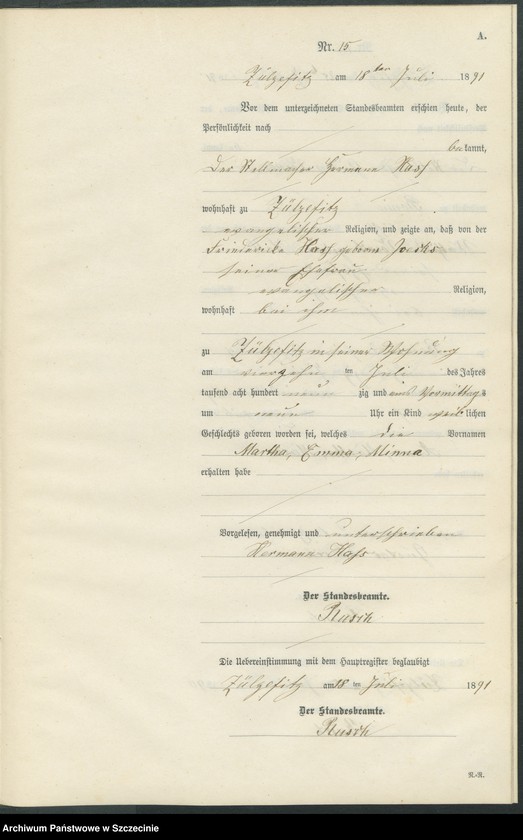 A.
Nr. 15
Zülzefitz am 18ten Juli 1891
Vor dem unterzeichneten Standesbeamten erschien heute, der
Persönlichkeit nach
bekannt,
Der Stellmacher Hermann Hass
wohnhaft zu Zülzefitz
evangelischer Religion, und zeigte an, daß von der
Friederike Hass geborne Joecks
seiner Ehefrau
evangelischer Religion,
wohnhaft bei ihm
zu Zülzefitz in seiner Wohnung
am vierzehn ten Juli des Jahres
tausend acht hundert neun zig und eins Vormittags
um neun Uhr ein Kind weiblichen
Geschlechts geboren worden sei, welches die Vornamen
Martha, Emma, Minna
erhalten habe
Vorgelesen, genehmigt und unterschrieben
Hermann Hass
Der Standesbeamte.
Rusch
Die Uebereinstimmung mit dem Hauptregister beglaubigt
Zülzefitz am 18 ten Juli 1891
Der Standesbeamte.
Rusch
N.-R.
Archiwum Państwowe w Szczecinie